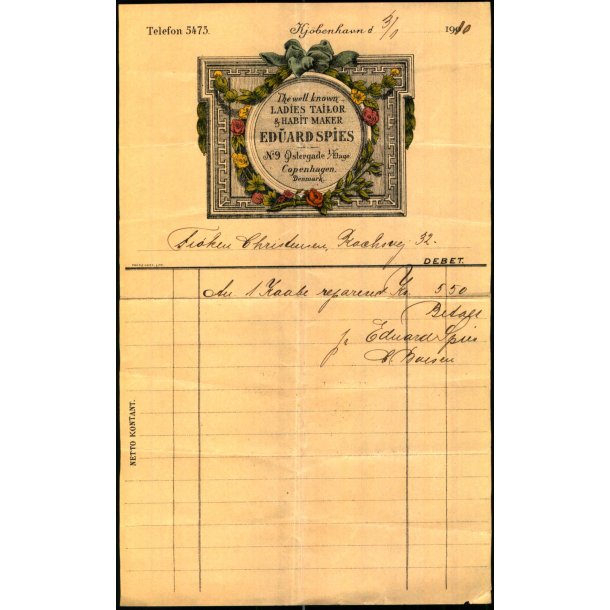 Telefon 5475.
Kjøbenhavn d 3/1 1910
The well known
LADIES TAILOR
& HABIT MAKER
EDUARD SPIES
No 9 Østergade 1. Etage
Copenhagen.
Denmark.
Frøken Christensen, 32.
DEBET.
An 1 Kaabe repareret Kr. 5 50
Betalt
Eduard Spies
NETTO KONTANT.